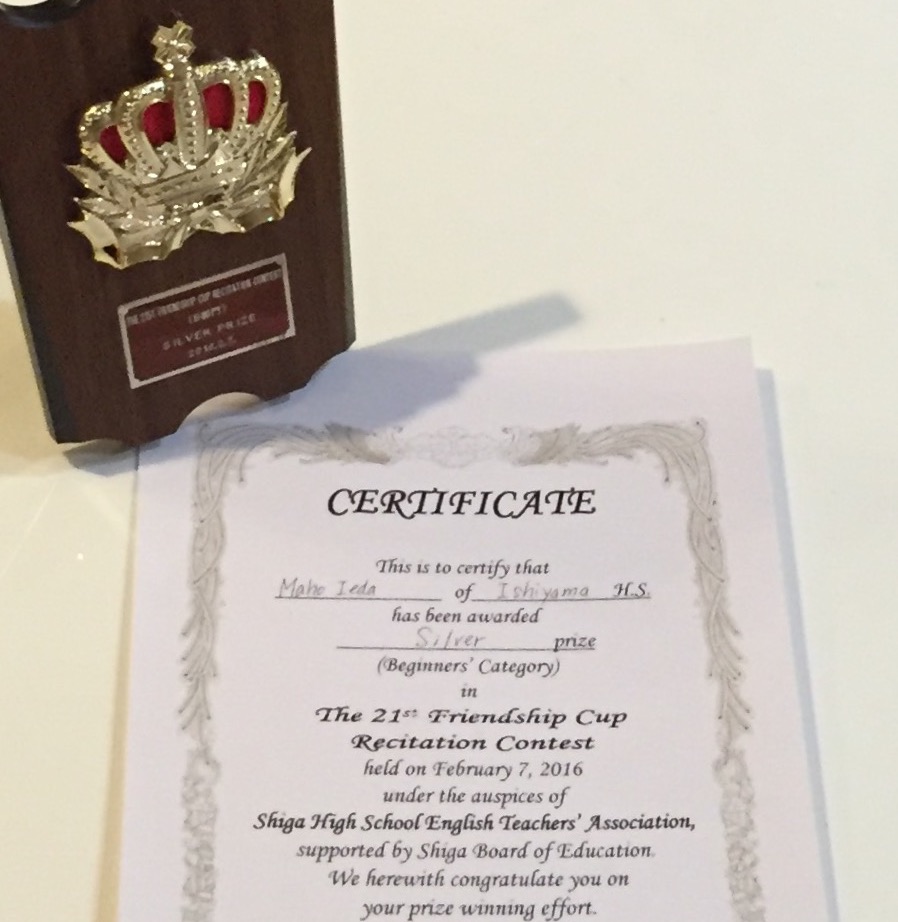 THE 21ST FRIENDSHIP CUP RECITATION CONTEST
SILVER PRIZE
CERTIFICATE
This is to certify that
Maho Ieda of Ishiyama H.S.
has been awarded
Silver prize
(Beginners' Category)
in
The 21st Friendship Cup
Recitation Contest
held on February 7, 2016
under the auspices of
Shiga High School English Teachers' Association,
supported by Shiga Board of Education.
We herewith congratulate you on
your prize winning effort.